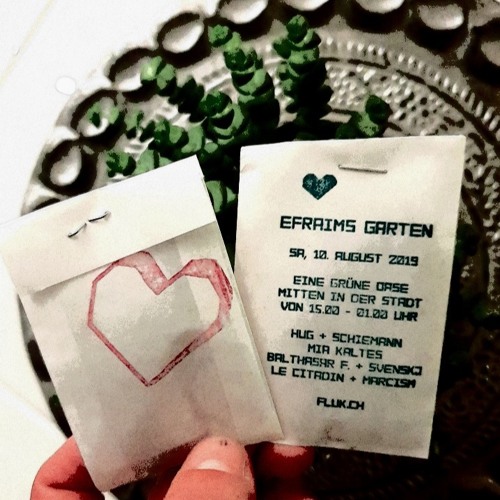 EFRAIMS GARTEN
SA, 10. AUGUST 2019
EINE GRÜNE OASE
MITTEN IN DER STADT
VON 15.00 - 01.00 UHR
HUG + SCHIEMANN
MIA KALTES
BALTHASAR F. + SVENSKJ
LE CITADIN + MARCISM
FLUK.CH